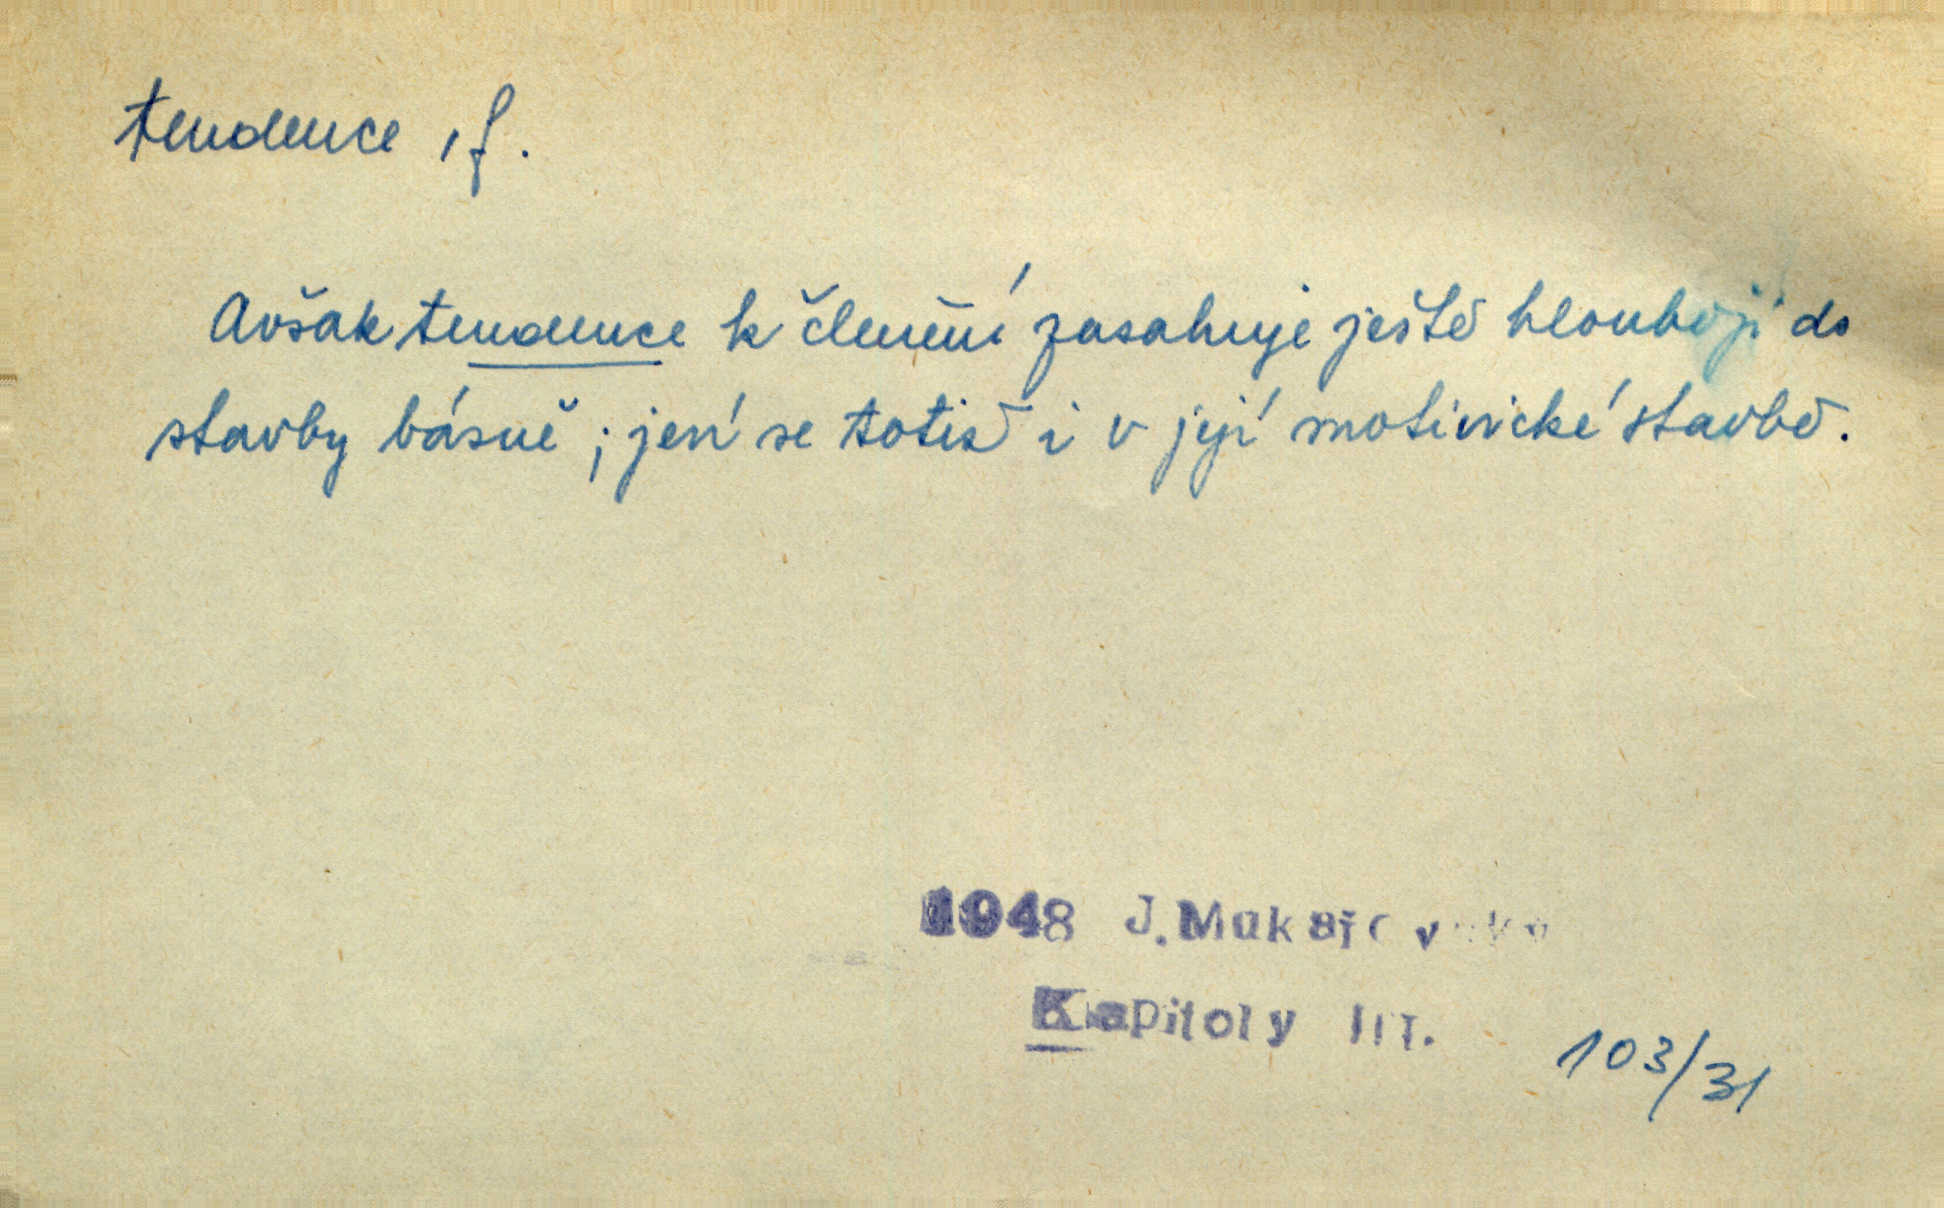 tendence, f.
Avšak tendence k členění zasahuje ještě hlouběji do
stavby básně; jeví se totiž i v její motivické stavbě.
1948 J. Mukařovský
Kapitoly III.
103/31